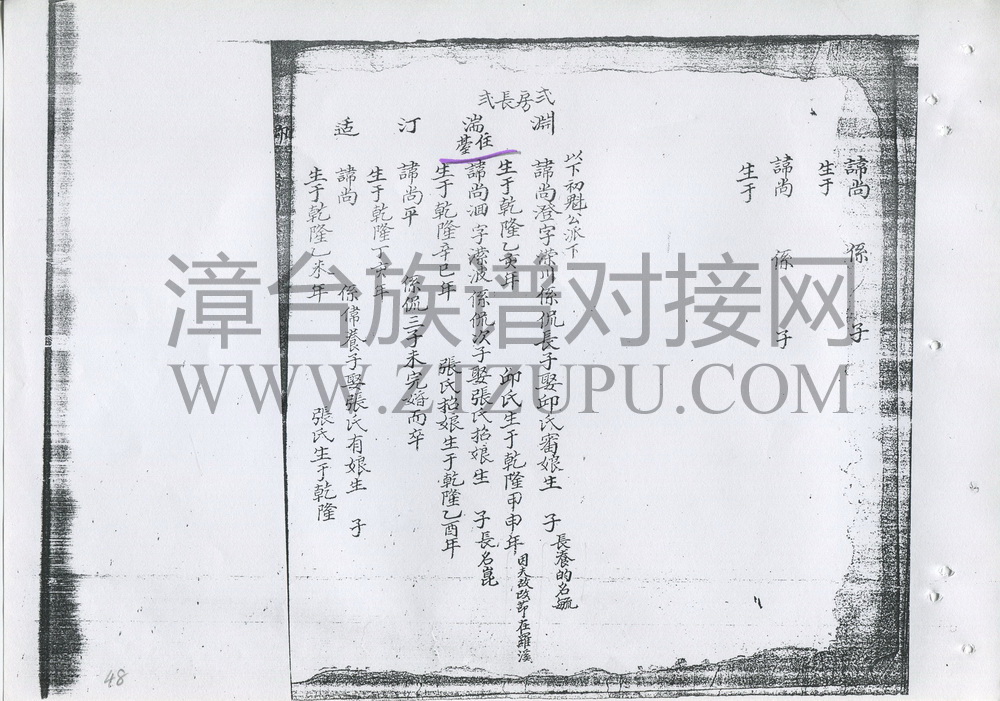 諱尚 係 子
生于
諱尚 係 子
生于
弍房長弍
以下初魁公派下
淵 諱尚澄字濴川係侃長子娶邱氏甯娘生 子 長養的名毓
生于乾隆乙亥年 邱氏生于乾隆甲申年 因夫故改節在羅溪
湍 住臺 諱尚洄字濴波係侃次子娶張氏招娘生 子長名崑
生于乾隆辛巳年 張氏招娘生于乾隆乙酉年
汀 諱尚平 係侃三子未完婚而卒
生于乾隆丁亥年
适 諱尚 係偉養子娶張氏有娘生 子
生于乾隆乙未年 張氏生于乾隆
漳台族谱对接网
WWW.ZTZUPU.COM
48